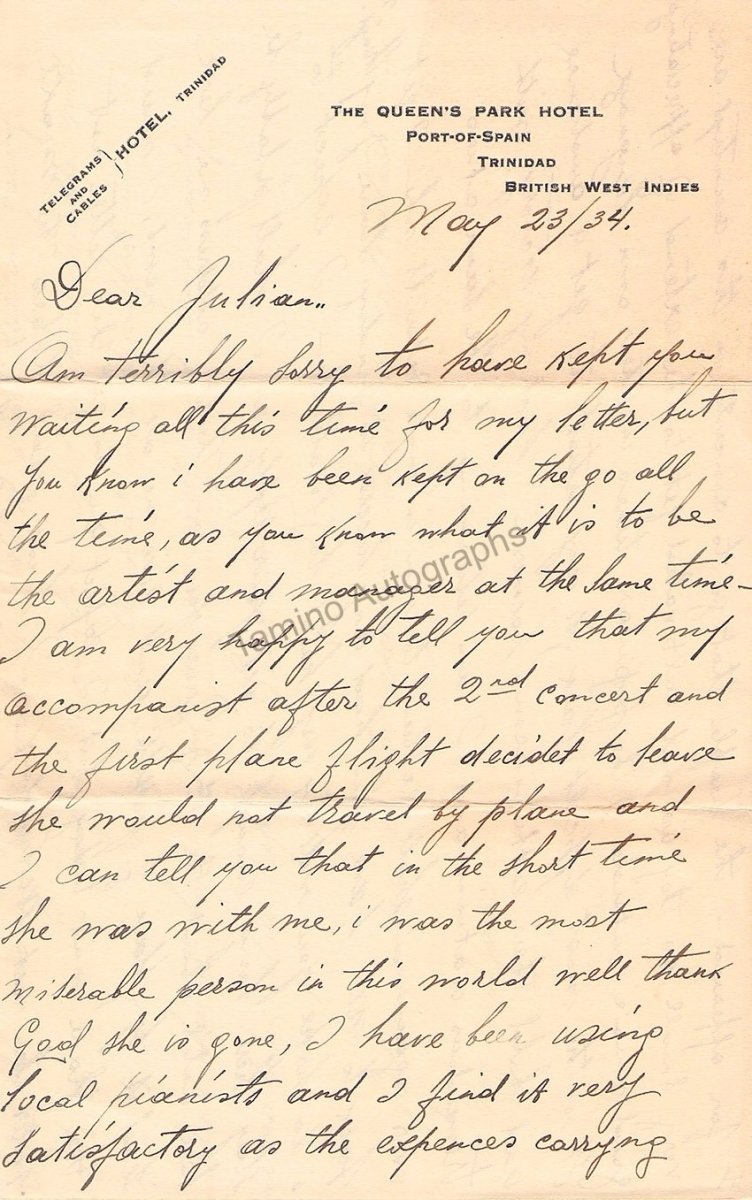 TELEGRAMS
AND
CABLES
HOTEL, TRINIDAD
THE QUEEN'S PARK HOTEL
PORT-OF-SPAIN
TRINIDAD
BRITISH WEST INDIES
May 23/34.
Dear Julian..
Am terribly sorry to have kept you
waiting all this time for my letter, but
you know i have been kept on the go all
the time, as you know what it is to be
the artist and manager at the same time-
I am very happy to tell you that my
accompanist after the 2nd concert and
the first plane flight decidet to leave
she would not travel by plane and
I can tell you that in the short time
she was with me, i was the most
miserable person in this world well thank
Good she is gone, I have been using
local pianists and I find it very
satisfactory as the expences carryng
Tamino Autographs